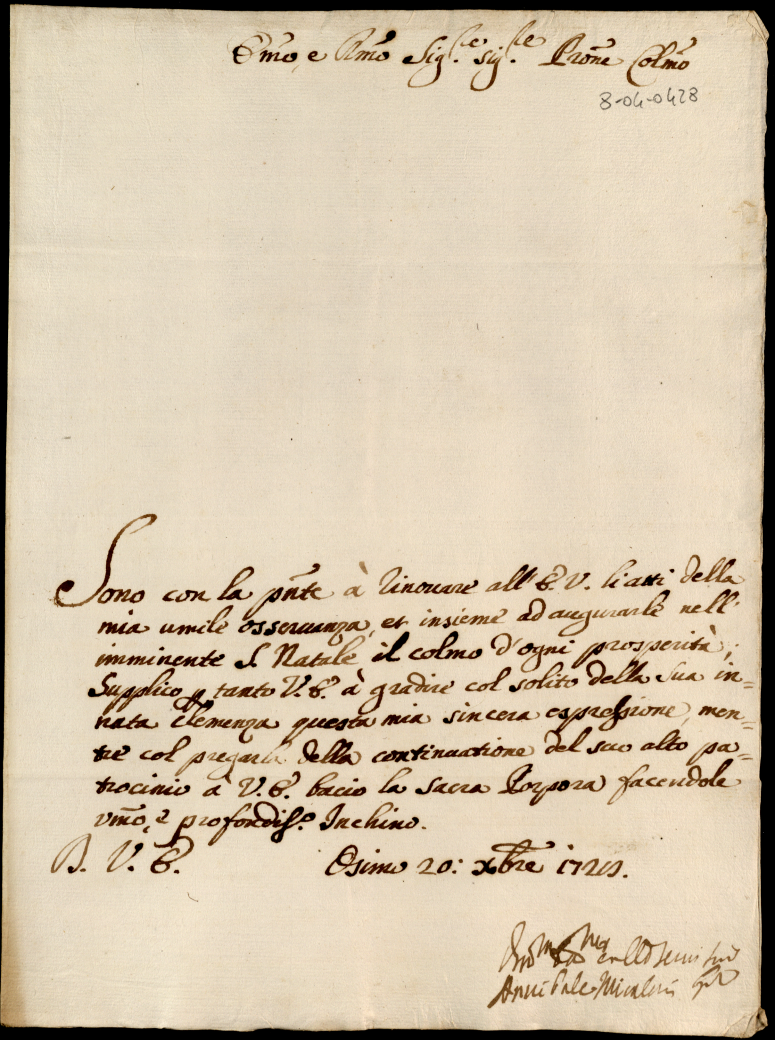 Emo, e Rmo Sig.re sig.re Prone Colmo
8-04-0428
Sono con la pnte à rinouare all'E.V. li atti della
mia umile osseruanza, et insieme ad augurarle nell'
imminente S. Natale il colmo d'ogni prosperità;
Supplico p tanto V.E. à gradire col solito della sua in=
nata Clemenza questa mia sincera espressione, men=
tre col pregarla della continuatione del suo alto pa=
trocinio à V.E. bacio la sacra Porpora facendole
vmo, e profondiss.o Inchino.
D. V. E. Osimo 20: xbre
Annibale